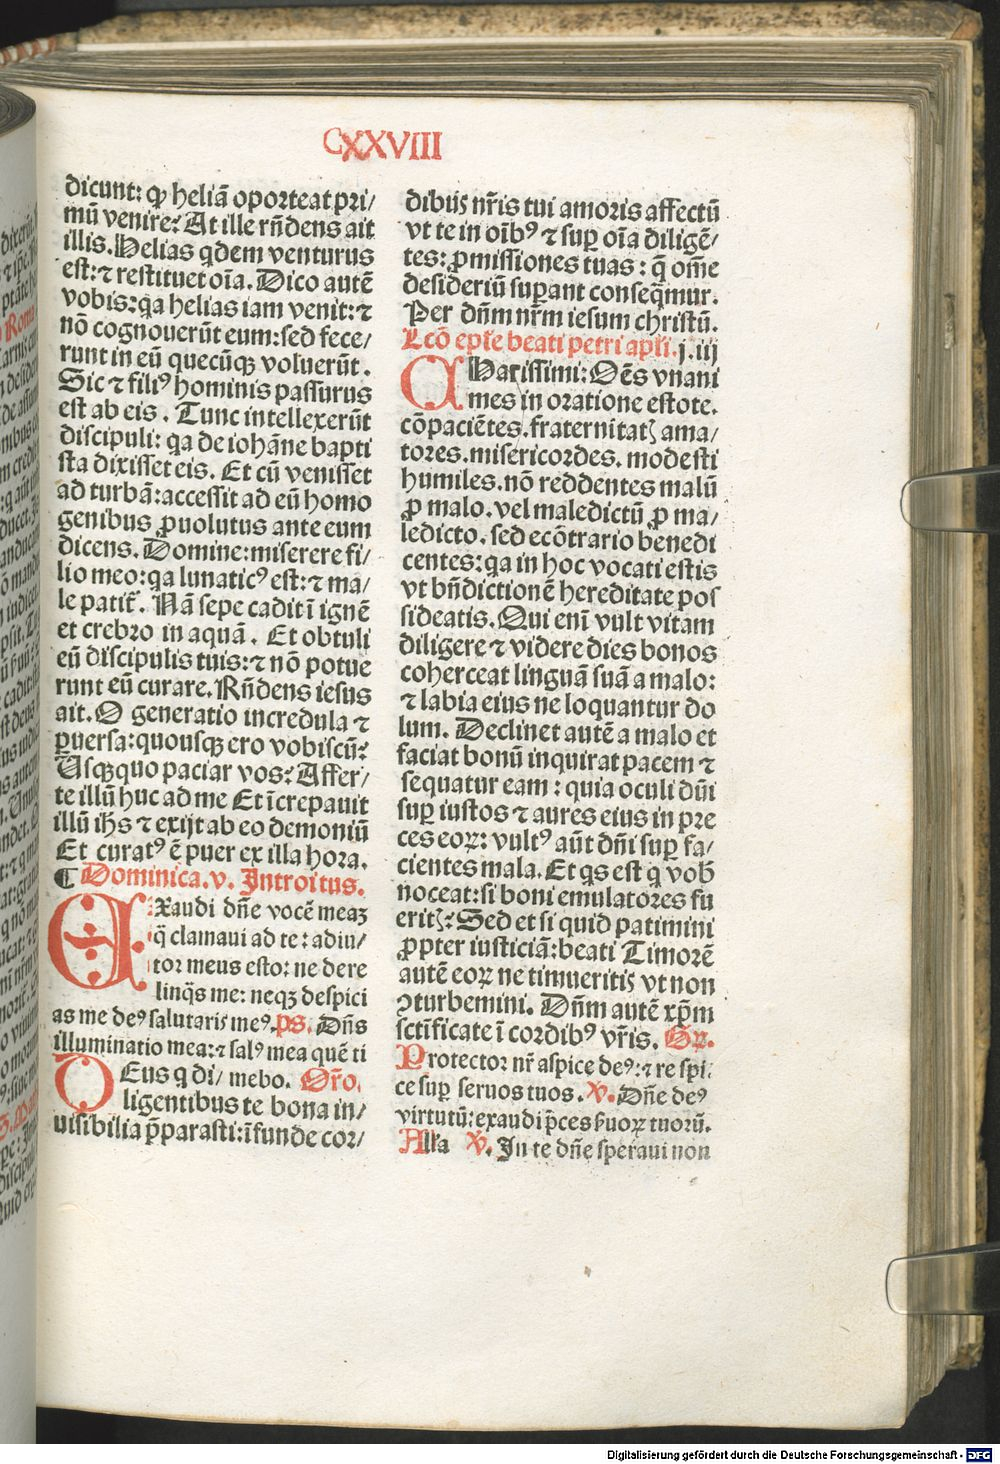 CXXVIII
dicunt: qꝫ heliā oporteat pri/
mū venire? At ille rn̄dens ait
illis. Helias qdem venturus
est: ⁊ restituet oīa. Dico autē
vobis: qa helias iam venit: ⁊
nō cognouerūt eum: sed fece/
runt in eū quecūqꝫ voluerūt.
Sic ⁊ filiꝰ hominis passurus
est ab eis. Tunc intellexerūt
discipuli: qa de iohāne bapti
sta dixisset eis. Et cū venisset
ad turbā: accessit ad eū homo
genibus ꝓuolutus ante eum
dicens. Domine: miserere fi/
lio meo: qa lunaticꝰ est: ⁊ ma/
le patit̄. Nā sepe cadit ī ignē
et crebro in aquā. Et obtuli
eū discipulis tuis: ⁊ nō potue
runt eū curare. Rn̄dens iesus
ait. O generatio incredula ⁊
ꝑuersa: quousqꝫ ero vobiscū?
Usqꝫquo paciar vos? Affer/
te illū huc ad me Et īcrepauit
illū ih̄s ⁊ exijt ab eo demoniū
Et curatꝰ ē puer ex illa hora.
¶ Dominica. v. Introitus.
EXaudi dn̄e vocē meaꝫ
q̄ clamaui ad te: adiu/
tor meus esto: ne dere
linq̄s me: neqꝫ despici
as me deꝰ salutaris meꝰ. ps. Dn̄s
illuminatio mea: ⁊ salꝰ mea quē ti
DEus q di/ mebo. Or̄o.
ligentibus te bona in/
uisibilia p̄parasti: īfunde cor/
dibus nr̄is tui amoris affectū
vt te in oībꝰ ⁊ suꝑ oīa diligē/
tes: ꝓmissiones tuas: q̄ om̄e
desideriū suꝑant conseq̄mur.
Per dn̄m nr̄m iesum christū.
Lcō epl̄e beati petri apl̄i. j. iij
CHarissimi: Oēs vnani
mes in oratione estote.
cōpaciētes. fraternitatꝭ ama/
tores. misericordes. modesti
humiles. nō reddentes malū
ꝓ malo. vel maledictū ꝓ ma/
ledicto. sed ecōtrario benedi
centes: qa in hoc vocati estis
vt bn̄dictionē hereditate pos
sideatis. Qui enī vult vitam
diligere ⁊ videre dies bonos
coherceat linguā suā a malo:
⁊ labia eius ne loquantur do
lum. Declinet autē a malo et
faciat bonū inquirat pacem ⁊
sequatur eam: quia oculi dn̄i
suꝑ iustos ⁊ aures eius in pre
ces eoꝝ: vultꝰ aūt dn̄i suꝑ fa/
cientes mala. Et qs est q vob
noceat: si boni emulatores fu
eritꝭ? Sed et si quid patimini
ꝓpter iusticiā: beati Timorē
autē eoꝝ ne timueritis vt non
ꝯturbemini. Dn̄m autē xp̄m
sctīficate ī cordibꝰ vr̄is. Gr̄.
Protector nr̄ aspice deꝰ: ⁊ respi.
ce suꝑ seruos tuos. ꝟ. Dn̄e deꝰ
virtutū: exaudi p̄ces ẜuoꝝ tuorū.
All̄a ꝟ. In te dn̄e speraui non
Digitalisierung gefördert durch die Deutsche Forschungsgemeinschaft - DFG